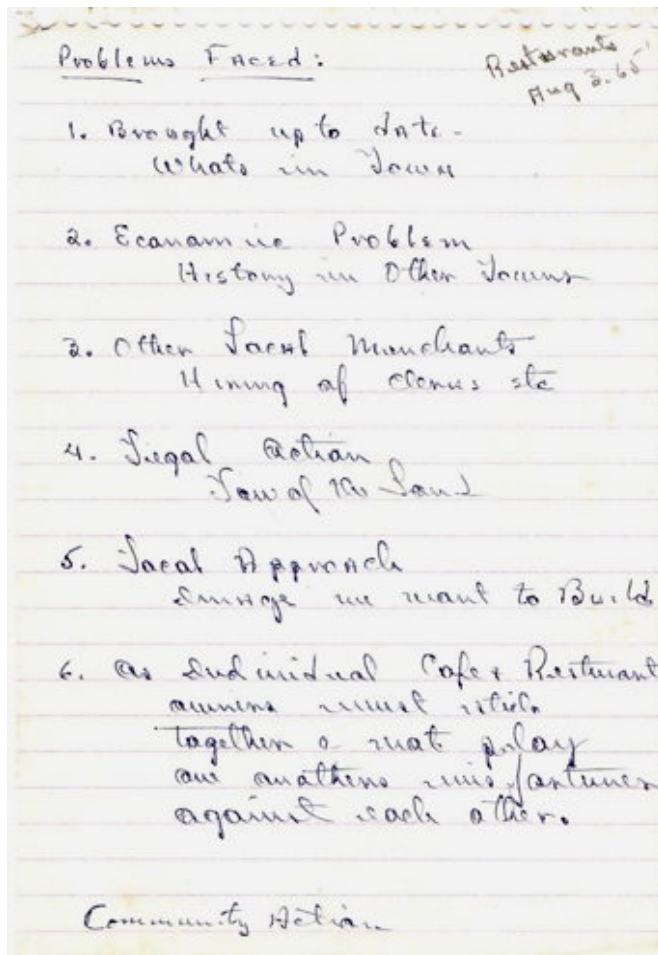 Problems Faced:
Resturants
Aug 3. 65
1. Brought up to date -
Whats in Town
2. Economic Problem
History in Other Towns
3. Other Local Merchants
Hiring of Clerks etc
4. Legal Action
Law of the Land
5. Local Approach
Image we want to Build
6. As Individual Cafe & Resturant
owners must stick
together & not play
one anothers misfortunes
against each other.
Community Action